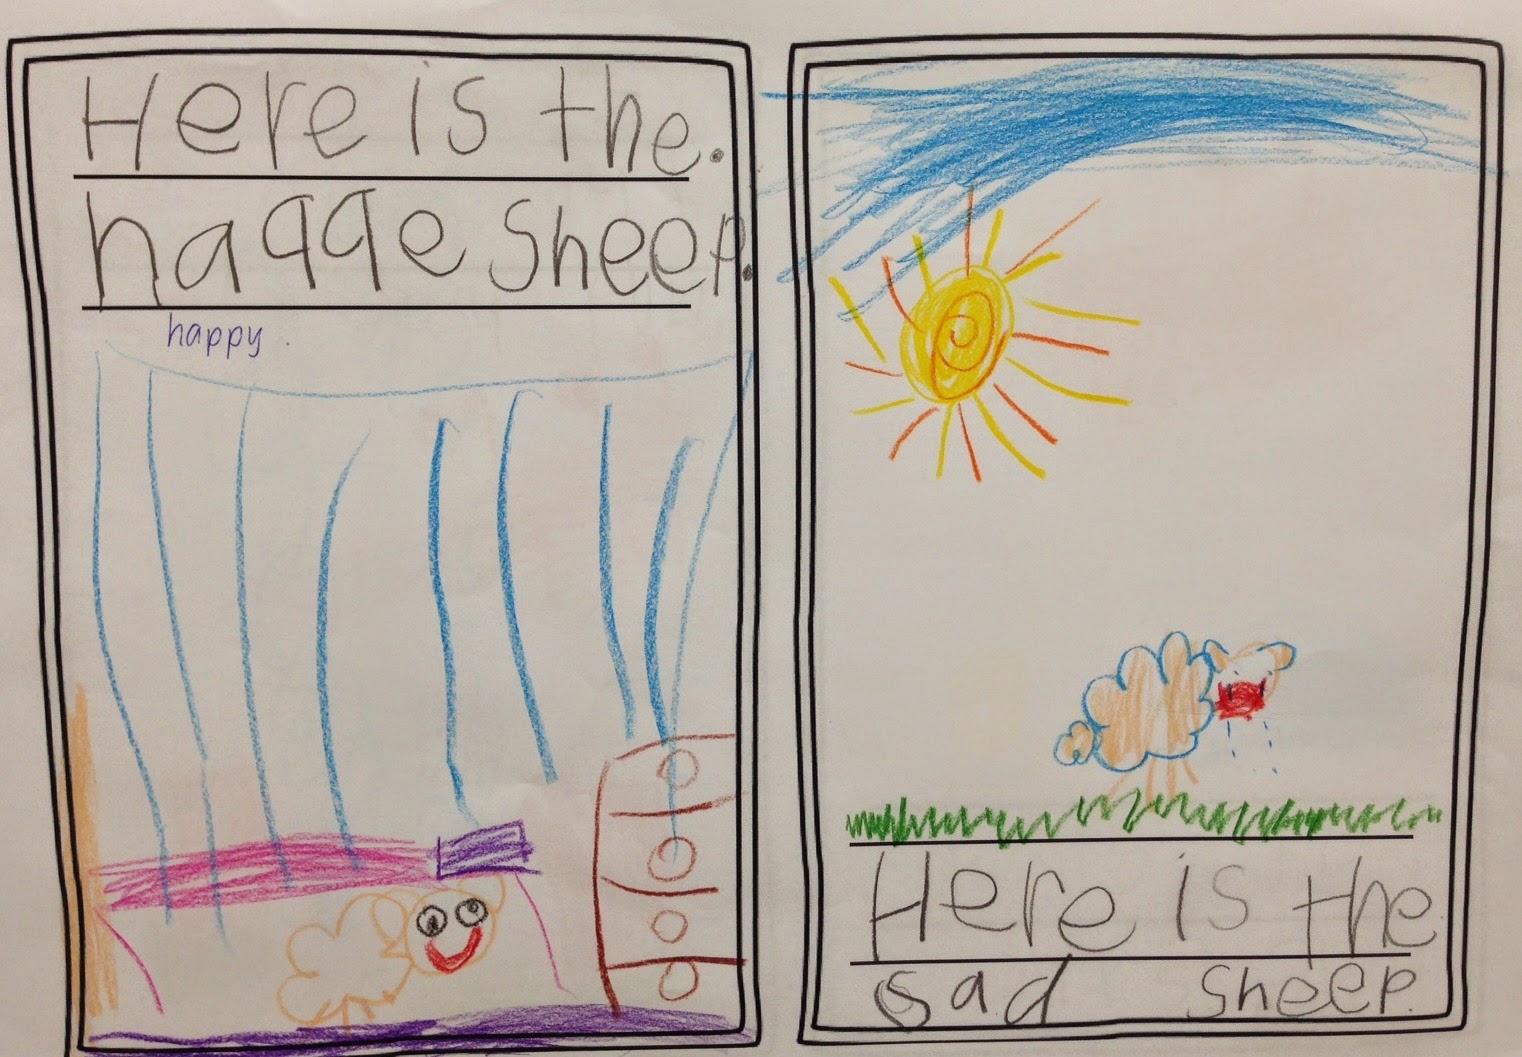 Here is the.
haqqe sheep.
happy.
Here is the
sad sheep.